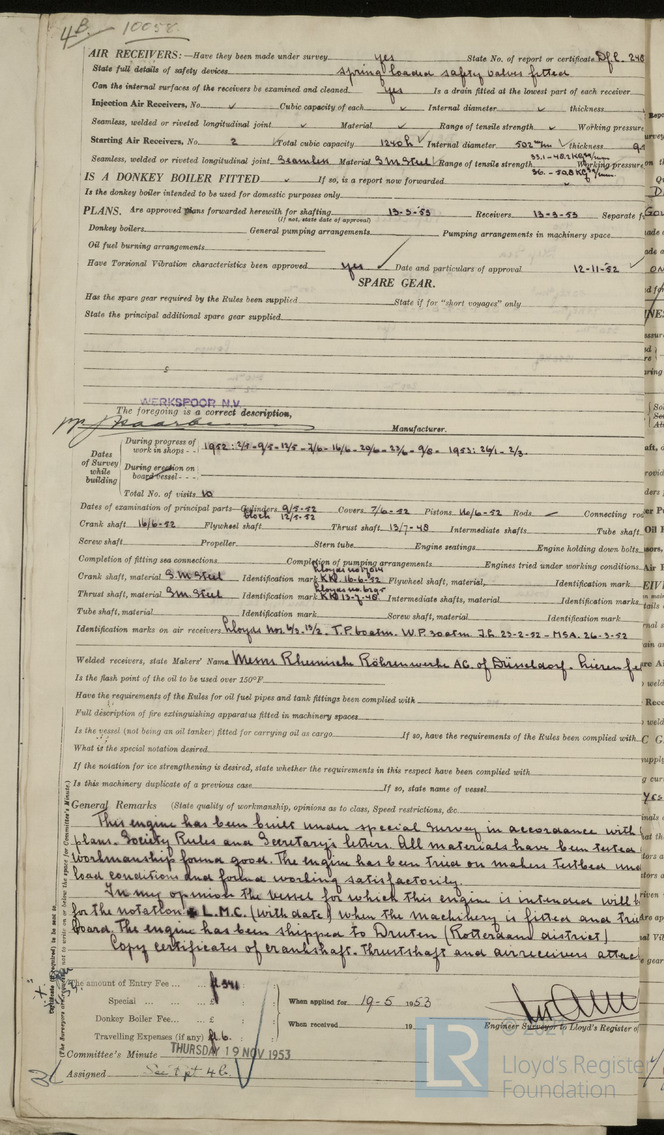 4B. 10058.
AIR RECEIVERS:—Have they been made under survey yes State No. of report or certificate Dfl. 248
State full details of safety devices spring loaded safety valves fitted
Can the internal surfaces of the receivers be examined and cleaned yes Is a drain fitted at the lowest part of each receiver
Injection Air Receivers, No. ✓ Cubic capacity of each ✓ Internal diameter ✓ thickness
Seamless, welded or riveted longitudinal joint ✓ Material ✓ Range of tensile strength ✓ Working pressure
Starting Air Receivers, No. 2 Total cubic capacity 1240 l Internal diameter 502 m/m thickness
Seamless, welded or riveted longitudinal joint Seamless Material S M Steel Range of tensile strength Working pressure
IS A DONKEY BOILER FITTED ✓ If so, is a report now forwarded ✓
Is the donkey boiler intended to be used for domestic purposes only
PLANS. Are approved plans forwarded herewith for shafting 13-3-53 Receivers 13-3-53 Separate
(If not, state date of approval)
Donkey boilers General pumping arrangements Pumping arrangements in machinery space
Oil fuel burning arrangements
Have Torsional Vibration characteristics been approved yes Date and particulars of approval 12-11-52
SPARE GEAR.
Has the spare gear required by the Rules been supplied State if for "short voyages" only
State the principal additional spare gear supplied
WERKSPOOR N.V.
The foregoing is a correct description,
Manufacturer.
Dates of Survey while building
During progress of work in shops - - 1952: 2/5 - 9/5 - 12/5 - 7/6 - 16/6 - 20/6 - 23/6 - 9/8 - 1953: 26/1 - 2/3.
During erection on board vessel - - -
Total No. of visits 10
Dates of examination of principal parts—Cylinders 9/5-52 Covers 7/6-52 Pistons 16/6-52 Rods — Connecting rods
block 12/5-52
Crank shaft 16/6-52 Flywheel shaft Thrust shaft 13/7-48 Intermediate shafts Tube shaft
Screw shaft Propeller Stern tube Engine seatings Engine holding down bolts
Completion of fitting sea connections Completion of pumping arrangements Engines tried under working conditions
Crank shaft, material S M Steel Identification mark KR 16-6-52 Flywheel shaft, material, Identification mark
Thrust shaft, material S M Steel Identification mark KR 13-7-48 Intermediate shafts, material Identification marks
Tube shaft, material Identification mark Screw shaft, material Identification mark
Identification marks on air receivers Lloyds nos T.P. 60 atm. W.P. 30 atm. J.L. 23-2-52 - MSA. 26-3-52
Welded receivers, state Makers' Name Messrs Rheinische Röhrenwerke AG. of Düsseldorf.
Is the flash point of the oil to be used over 150°F
Have the requirements of the Rules for oil fuel pipes and tank fittings been complied with
Full description of fire extinguishing apparatus fitted in machinery spaces
Is the vessel (not being an oil tanker) fitted for carrying oil as cargo If so, have the requirements of the Rules been complied with
What is the special notation desired
If the notation for ice strengthening is desired, state whether the requirements in this respect have been complied with
Is this machinery duplicate of a previous case If so, state name of vessel
General Remarks (State quality of workmanship, opinions as to class, Speed restrictions, &c.
This engine has been built under special survey in accordance with
plans. Society Rules and Secretary's letters. All materials have been tested
workmanship found good. The engine has been tried on makers testbed
load conditions and found working satisfactorily.
In my opinion the vessel for which this engine is intended will
for the notation L.M.C. (with date) when the machinery is fitted and
board. The engine has been shipped to Druten (Rotterdam district)
Copy certificates of crankshaft. thrustshaft and airreceivers
The amount of Entry Fee ... fl 541
Special ... £ :
Donkey Boiler Fee... £ :
Travelling Expenses (if any) fl. 6.
When applied for 19-5 1953
When received 19
Engineer Surveyor to Lloyd's Register of
Committee's Minute THURSDAY 19 NOV 1953
Assigned See Rpt 4b.
© 2021
LR
Lloyd's Register
Foundation